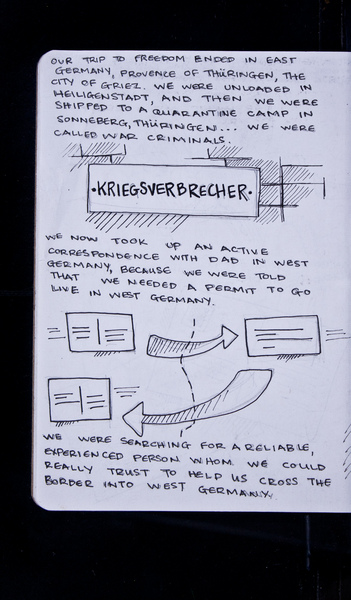 OUR TRIP TO FREEDOM ENDED IN EAST
GERMANY, PROVENCE OF THÜRINGEN, THE
CITY OF GRIEZ. WE WERE UNLOADED IN
HEILIGENSTADT, AND THEN WE WERE
SHIPPED TO A QUARANTINE CAMP IN
SONNEBERG, THÜRINGEN... WE WERE
CALLED WAR CRIMINALS.
·KRIEGSVERBRECHER·
WE NOW TOOK UP AN ACTIVE
CORRESPONDENCE WITH DAD IN WEST
GERMANY, BECAUSE WE WERE TOLD
THAT WE NEEDED A PERMIT TO GO
LIVE IN WEST GERMANY.
WE WERE SEARCHING FOR A RELIABLE,
EXPERIENCED PERSON WHOM WE COULD
REALLY TRUST TO HELP US CROSS THE
BORDER INTO WEST GERMANY.